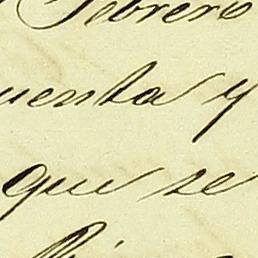 Febrero
uenta y
que se